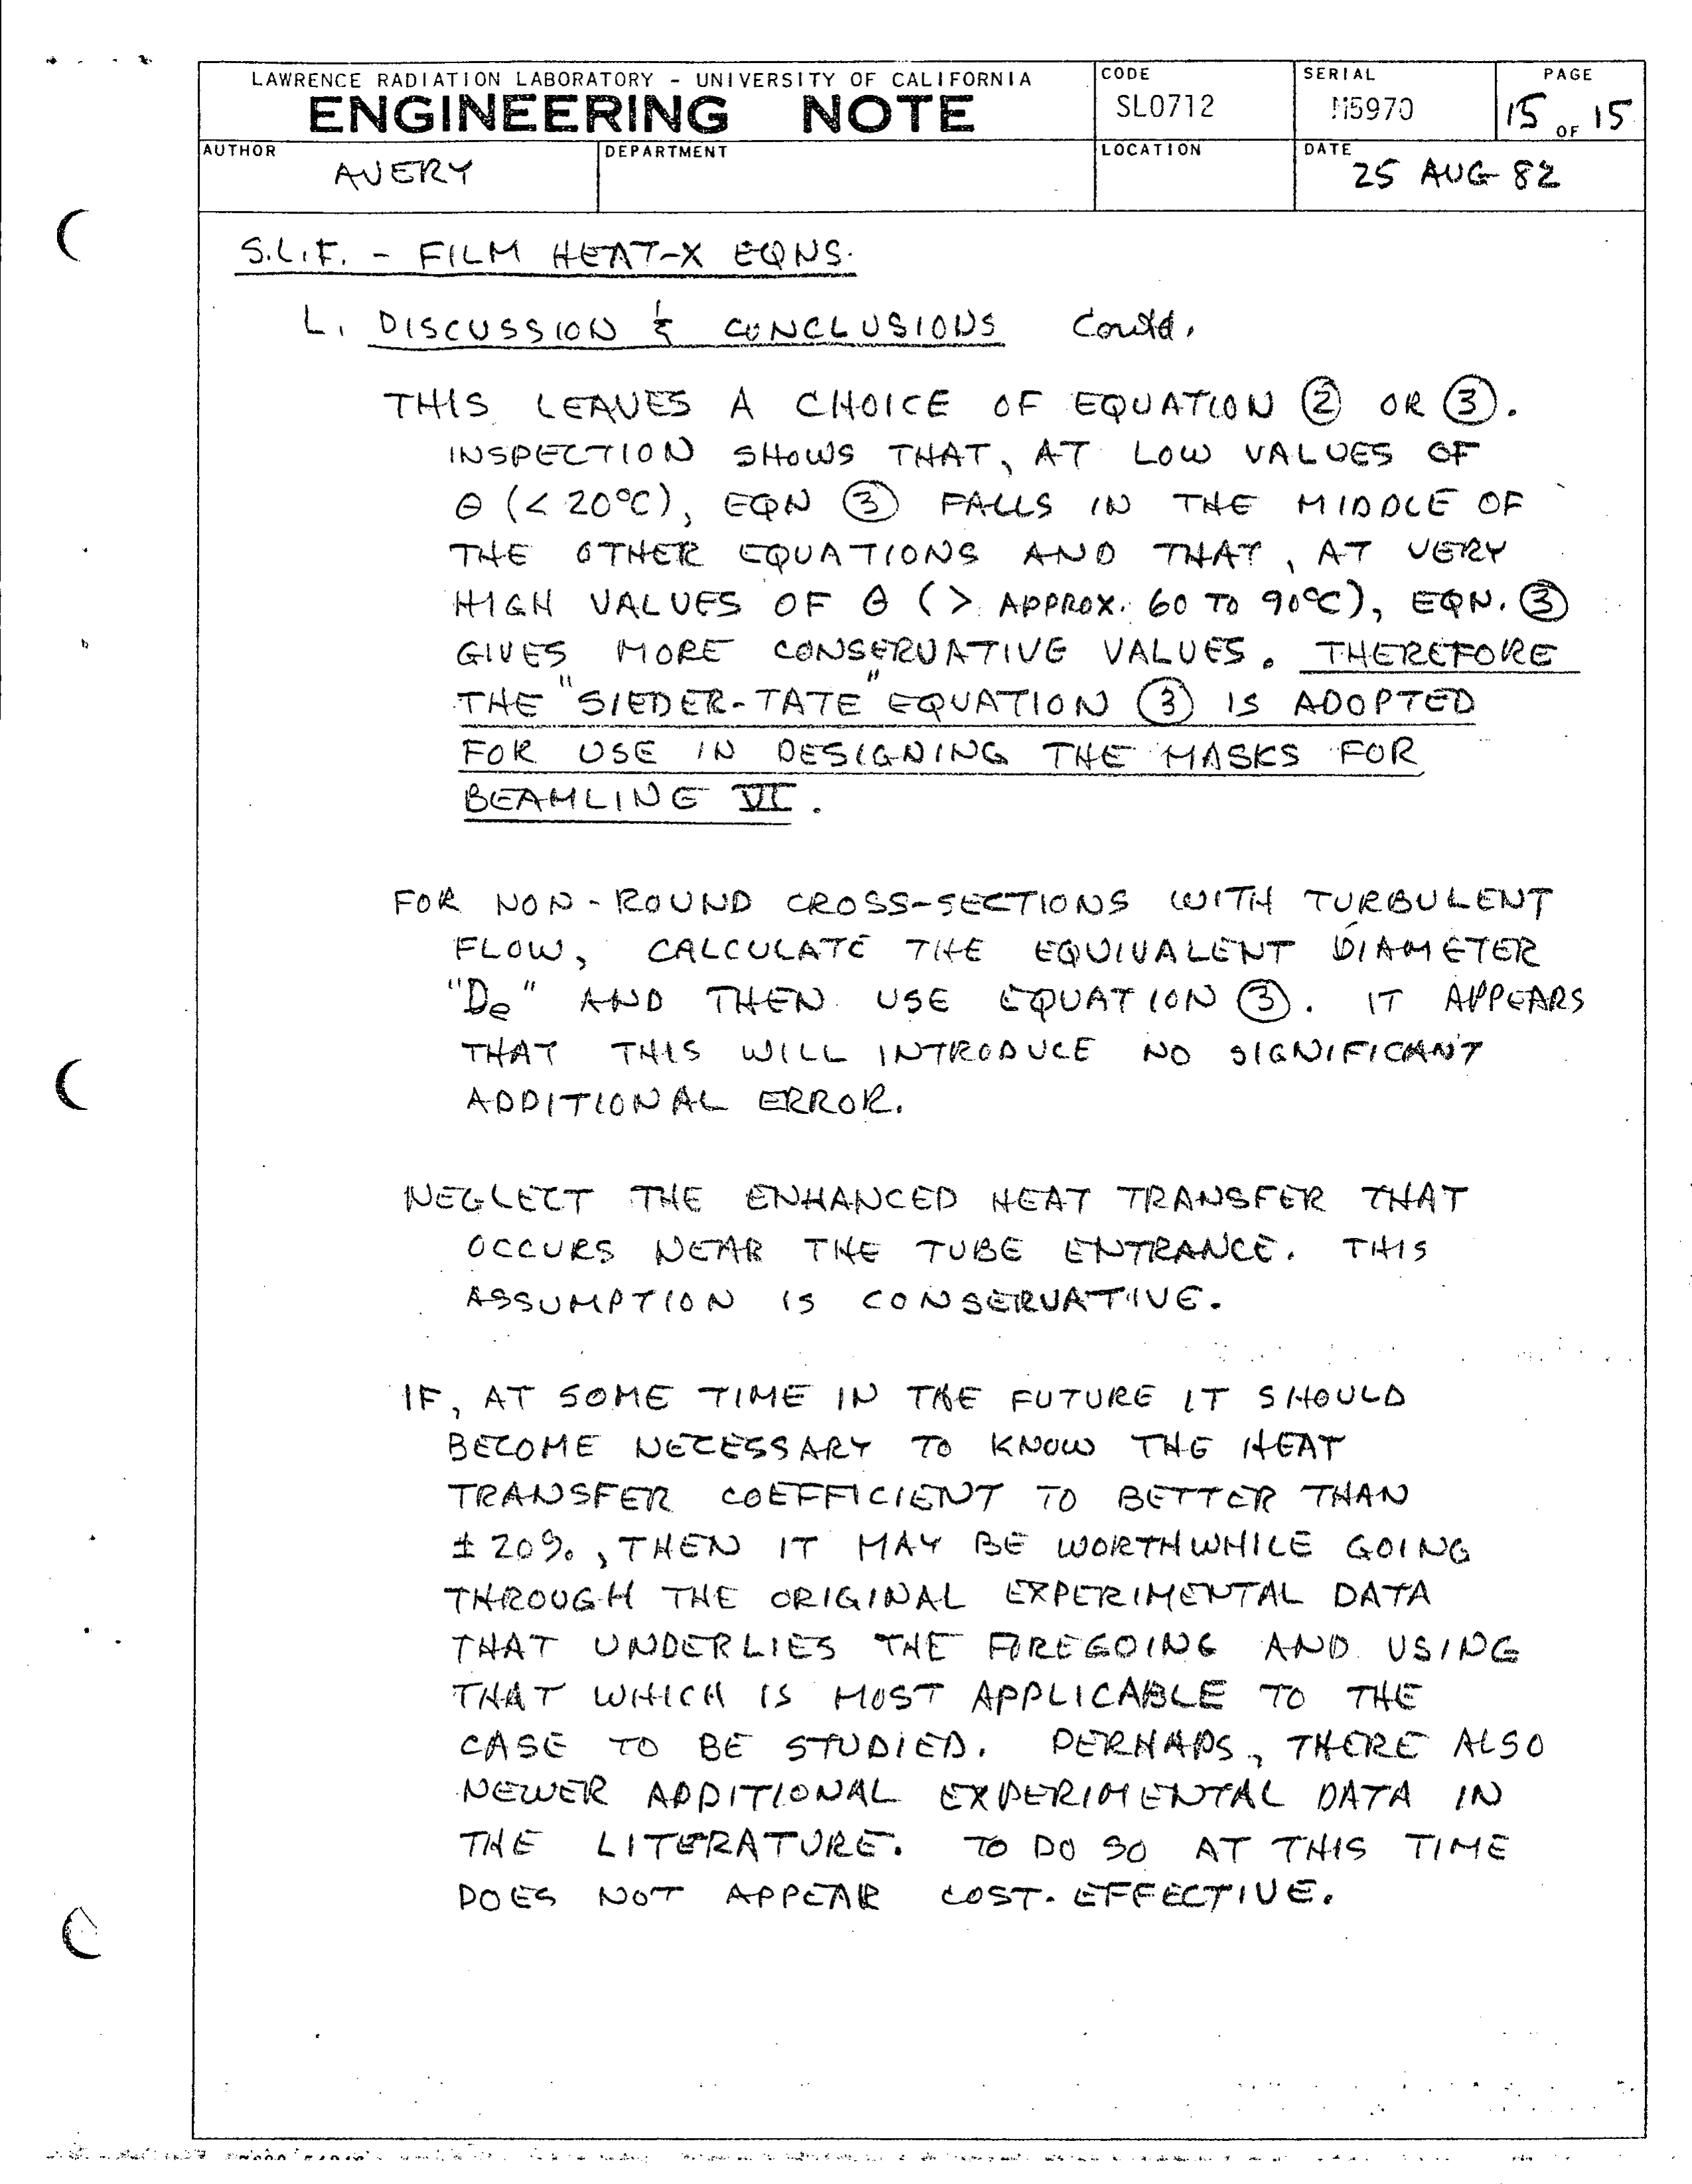 LAWRENCE RADIATION LABORATORY - UNIVERSITY OF CALIFORNIA
ENGINEERING NOTE
CODE
SL0712
SERIAL
M5970
PAGE
15 OF 15
AUTHOR
AVERY
DEPARTMENT
LOCATION
DATE
25 AUG 82
S.L.F. - FILM HEAT-X EQNS.
L. DISCUSSION & CONCLUSIONS Contd.
THIS LEAVES A CHOICE OF EQUATION ② OR ③.
INSPECTION SHOWS THAT, AT LOW VALUES OF
θ (< 20°C), EQN ③ FALLS IN THE MIDDLE OF
THE OTHER EQUATIONS AND THAT, AT VERY
HIGH VALUES OF θ (> APPROX. 60 TO 90°C), EQN. ③
GIVES MORE CONSERVATIVE VALUES. THEREFORE
THE "SIEDER-TATE" EQUATION ③ IS ADOPTED
FOR USE IN DESIGNING THE MASKS FOR
BEAMLINE VI.
FOR NON-ROUND CROSS-SECTIONS WITH TURBULENT
FLOW, CALCULATE THE EQUIVALENT DIAMETER
"De" AND THEN USE EQUATION ③. IT APPEARS
THAT THIS WILL INTRODUCE NO SIGNIFICANT
ADDITIONAL ERROR.
NEGLECT THE ENHANCED HEAT TRANSFER THAT
OCCURS NEAR THE TUBE ENTRANCE. THIS
ASSUMPTION IS CONSERVATIVE.
IF, AT SOME TIME IN THE FUTURE IT SHOULD
BECOME NECESSARY TO KNOW THE HEAT
TRANSFER COEFFICIENT TO BETTER THAN
± 20%, THEN IT MAY BE WORTHWHILE GOING
THROUGH THE ORIGINAL EXPERIMENTAL DATA
THAT UNDERLIES THE FOREGOING AND USING
THAT WHICH IS MOST APPLICABLE TO THE
CASE TO BE STUDIED. PERHAPS, THERE ALSO
NEWER ADDITIONAL EXPERIMENTAL DATA IN
THE LITERATURE. TO DO SO AT THIS TIME
DOES NOT APPEAR COST-EFFECTIVE.